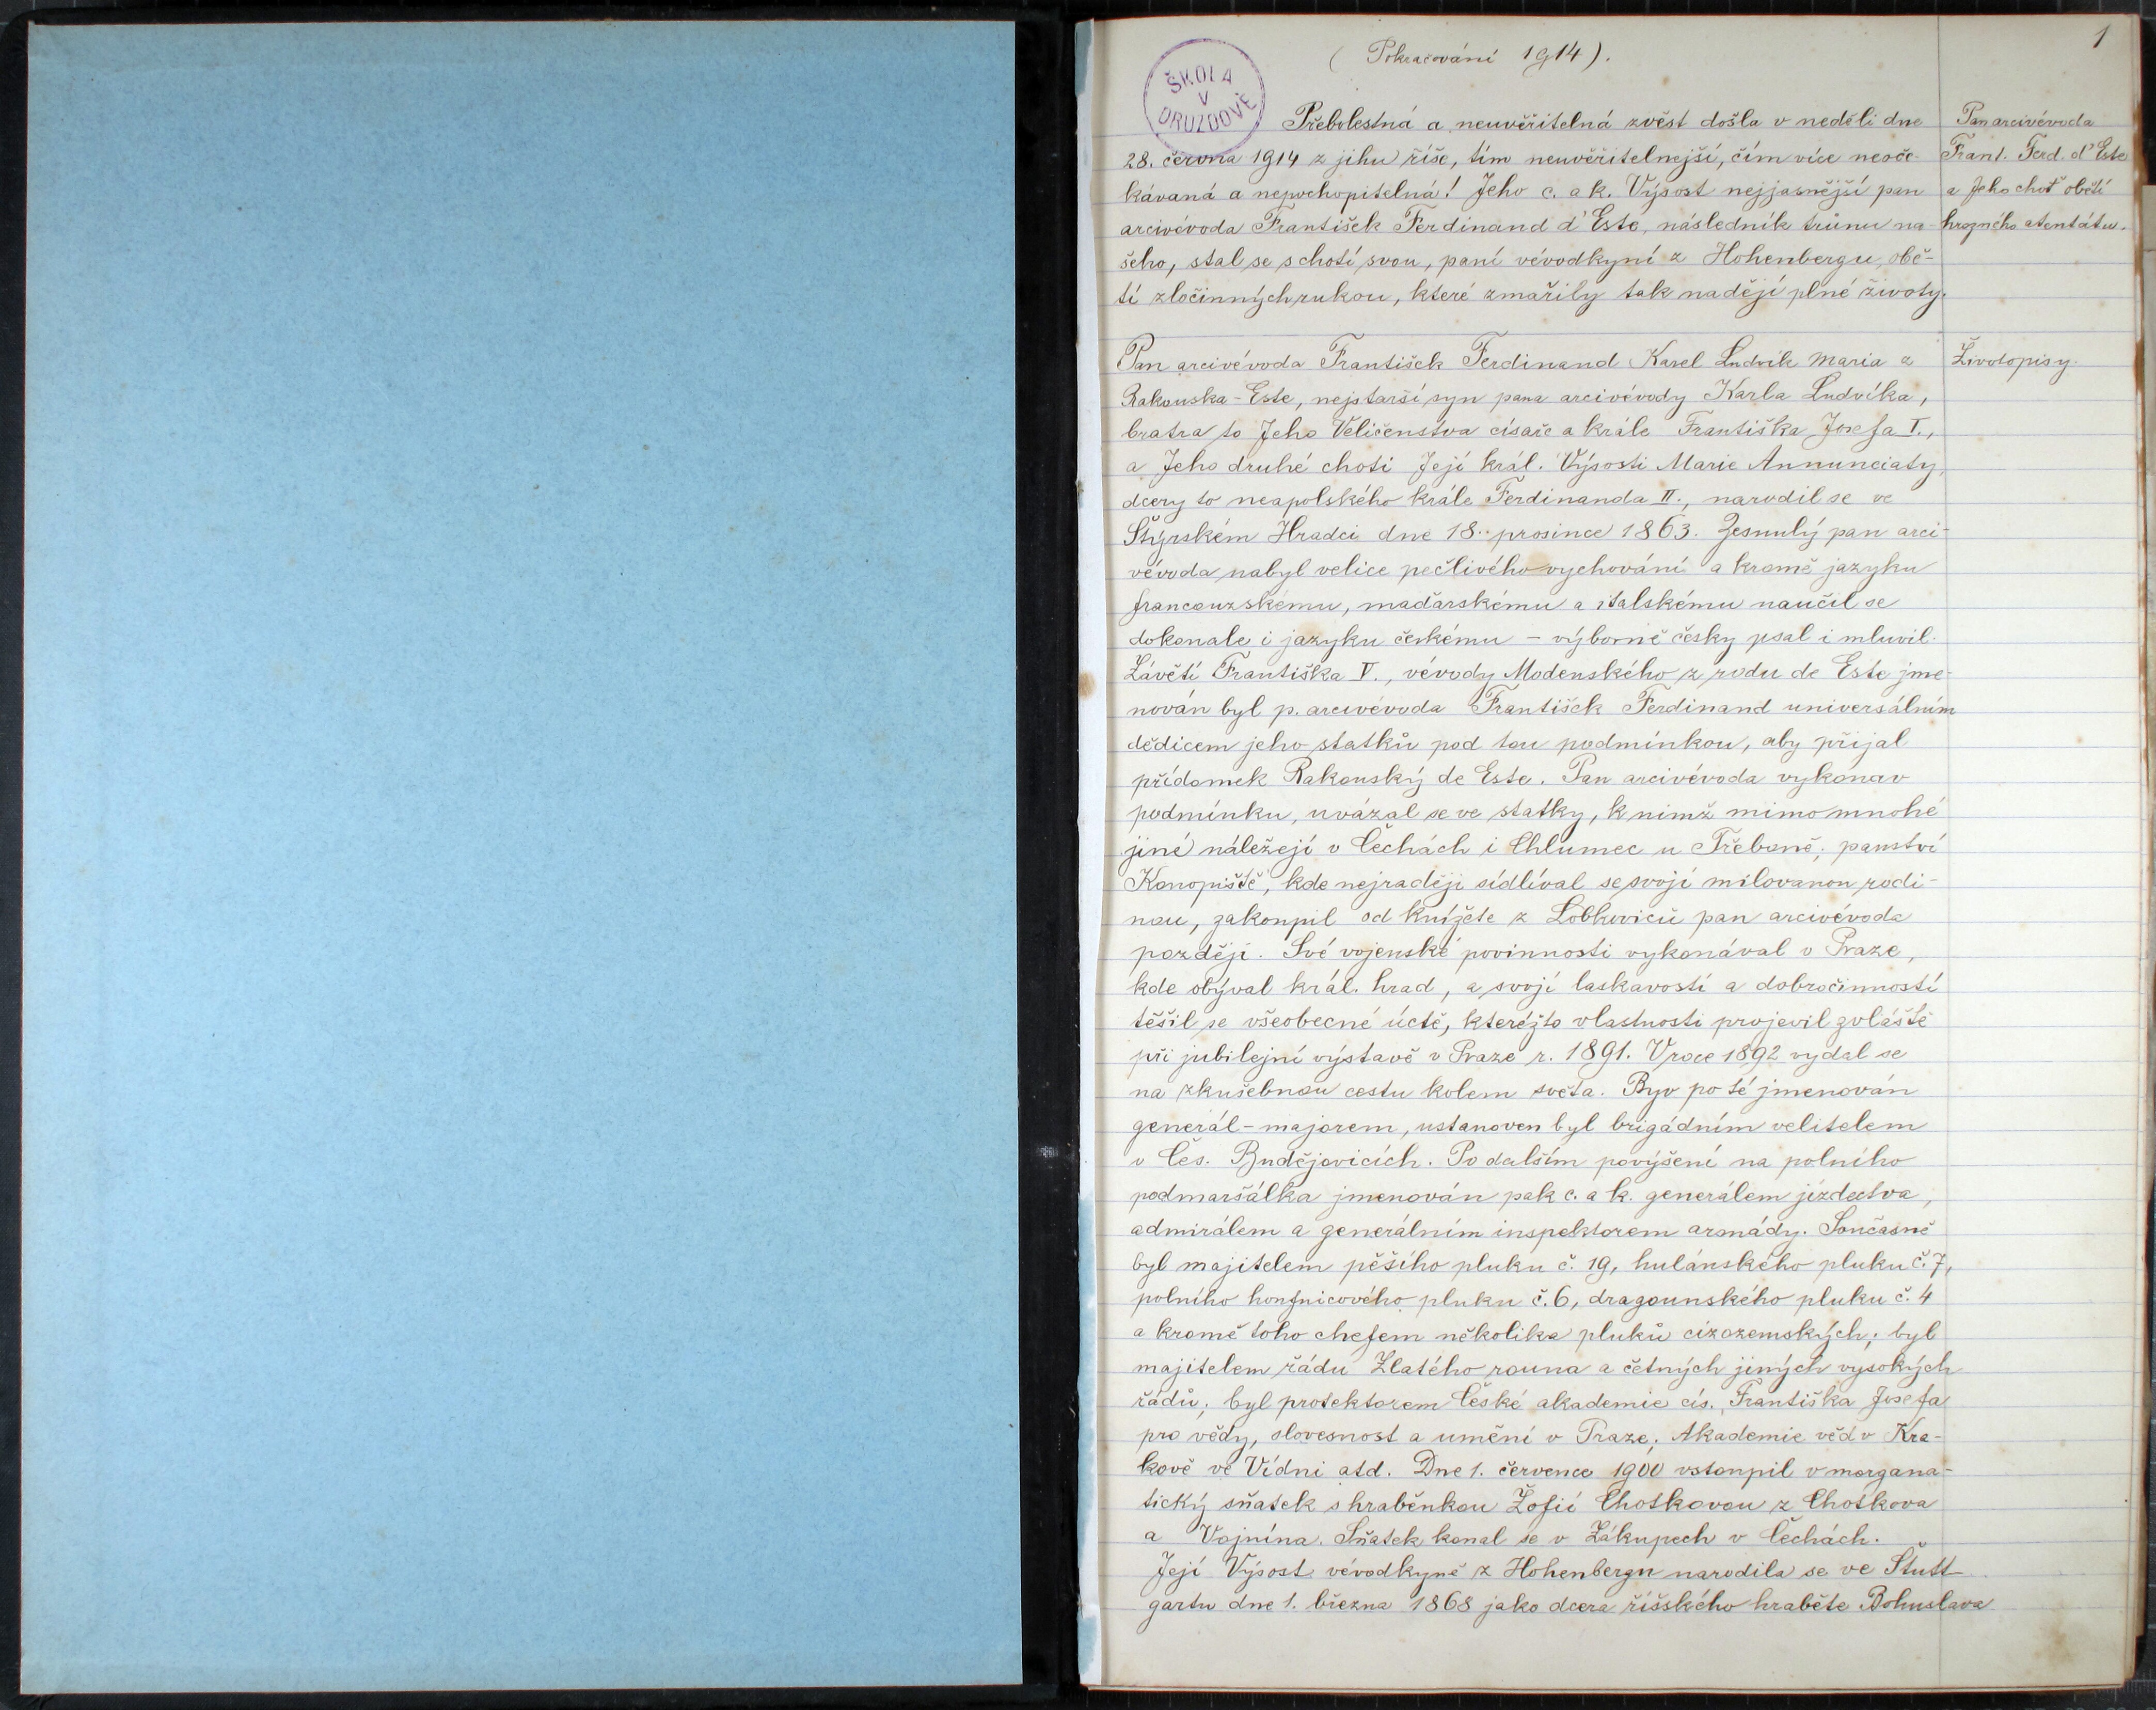 1
( Pokračování 1914 ).
ŠKOLA
V
DRUZDOVĚ
Přebolestná a neuvěřitelná zvěst došla v neděli dne
28. června 1914 z jihu říše, tím neuvěřitelnější, čím více neoče-
kávaná a nepochopitelná! Jeho c. a k. Výsost nejjasnější pan
arcivévoda František Ferdinand d'Este, následník trůnu na-
šeho, stal se s chotí svou, paní vévodkyní z Hohenbergu, obě-
tí zločinných rukou, které zmařily tak nadějí plné životy.
Pan arcivévoda
Frant. Ferd. d'Este
a Jeho choť obětí
hrozného atentátu.
Pan arcivévoda František Ferdinand Karel Ludvík Maria z
Rakouska-Este, nejstarší syn pana arcivévody Karla Ludvíka,
bratra to Jeho Veličenstva císaře a krále Františka Josefa I.,
a Jeho druhé choti Její král. Výsosti Marie Annunciaty,
dcery to neapolského krále Ferdinanda II., narodil se ve
Štýrském Hradci dne 18. prosince 1863. Zesnulý pan arci-
vévoda nabyl velice pečlivého vychování a kromě jazyku
francouzskému, maďarskému a italskému naučil se
dokonale i jazyku českému – výborně česky psal i mluvil.
Závětí Františka V., vévody Modenského z rodu de Este jme-
nován byl p. arcivévoda František Ferdinand universálním
dědicem jeho statků pod tou podmínkou, aby přijal
přídomek Rakouský de Este. Pan arcivévoda vykonav
podmínku, uvázal se ve statky, k nimž mimo mnohé
jiné náležejí v Čechách i Chlumec u Třeboně; panství
Konopiště, kde nejraději sídlíval se svojí milovanou rodi-
nou, zakoupil od knížete z Lobkoviců pan arcivévoda
později. Své vojenské povinnosti vykonával v Praze,
kde obýval král. hrad, a svojí laskavostí a dobročinností
těšil se všeobecné úctě, kteréžto vlastnosti projevil zvláště
při jubilejní výstavě v Praze r. 1891. V roce 1892 vydal se
na zkušebnou cestu kolem světa. Byv po té jmenován
generál-majorem, ustanoven byl brigádním velitelem
v Čes. Budějovicích. Po dalším povýšení na polního
podmaršálka jmenován pak c. a k. generálem jízdectva,
admirálem a generálním inspektorem armády. Současně
byl majitelem pěšího pluku č. 19, hulánského pluku č. 7,
polního houfnicového pluku č. 6, dragounského pluku č. 4
a kromě toho chefem několika pluků cizozemských; byl
majitelem řádu Zlatého rouna a četných jiných vysokých
řádů; byl protektorem České akademie cís. Františka Josefa
pro vědy, slovesnost a umění v Praze, Akademie věd v Kra-
kově ve Vídni atd. Dne 1. července 1900 vstoupil v morgana-
tický sňatek s hraběnkou Žofií Chotkovou z Chotkova
a Vojnína. Sňatek konal se v Zákupech v Čechách.
Její Výsost vévodkyně z Hohenbergu narodila se ve Štutt-
gartu dne 1. března 1868 jako dcera říšského hraběte Bohuslava
Životopisy.